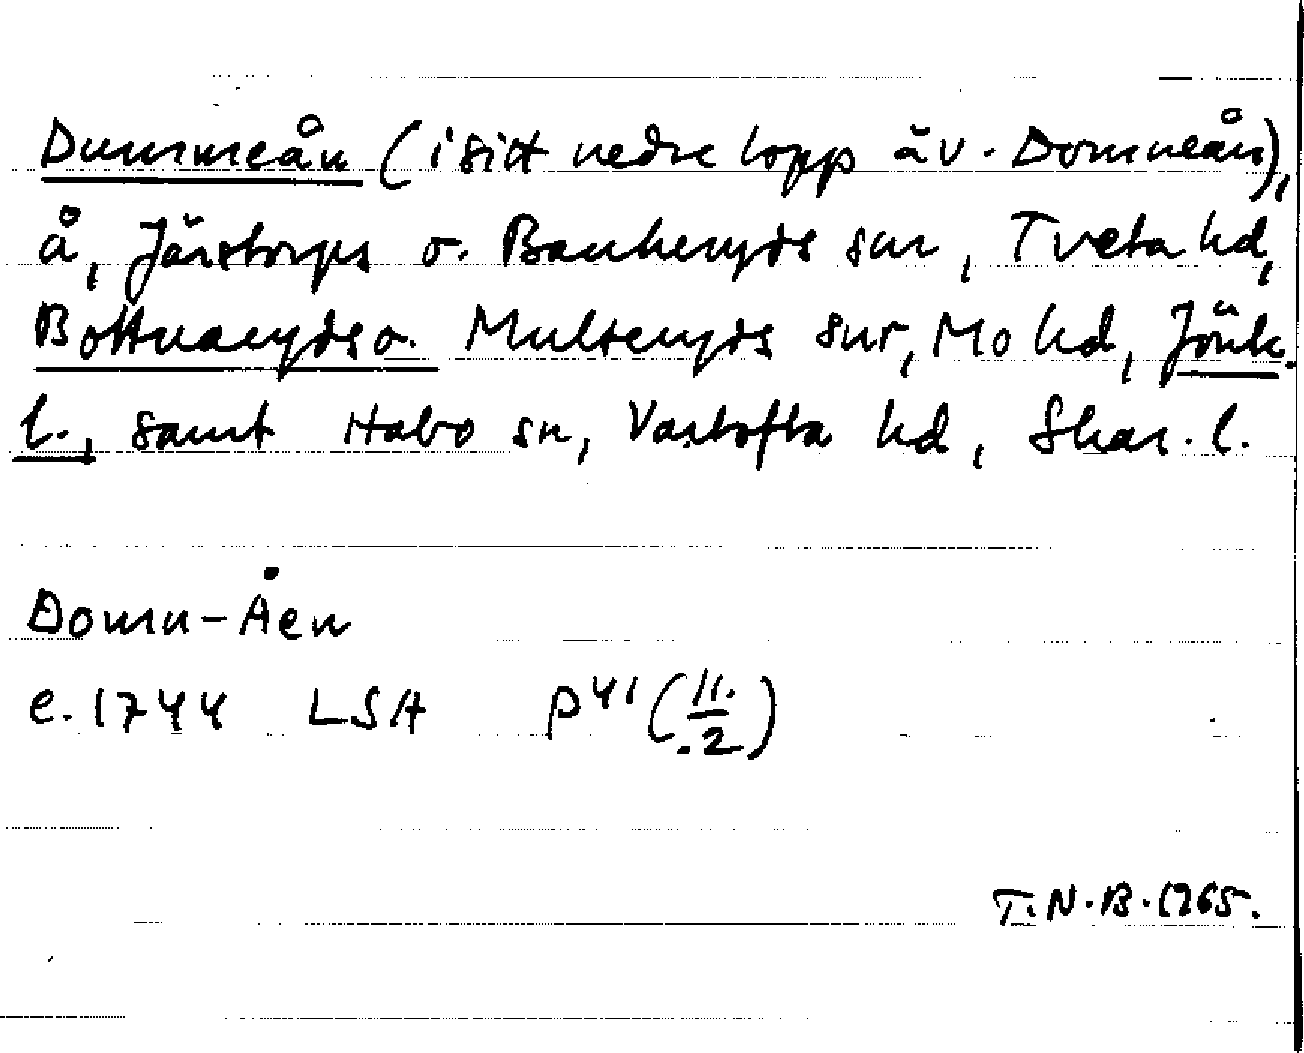 Dummeån (i sitt nedre lopp äv. Domneån),
å, Järstorps o. Bankeryds snr, Tveta hd,
Bottnaryds o. Mulseryds snr, Mo hd, Jönk.
l., samt Habo sn, Vartofta hd, Skar. l.
Domn-Åen
e. 1744 LSA P 41 (11./.2)
T.N.B. 1965.